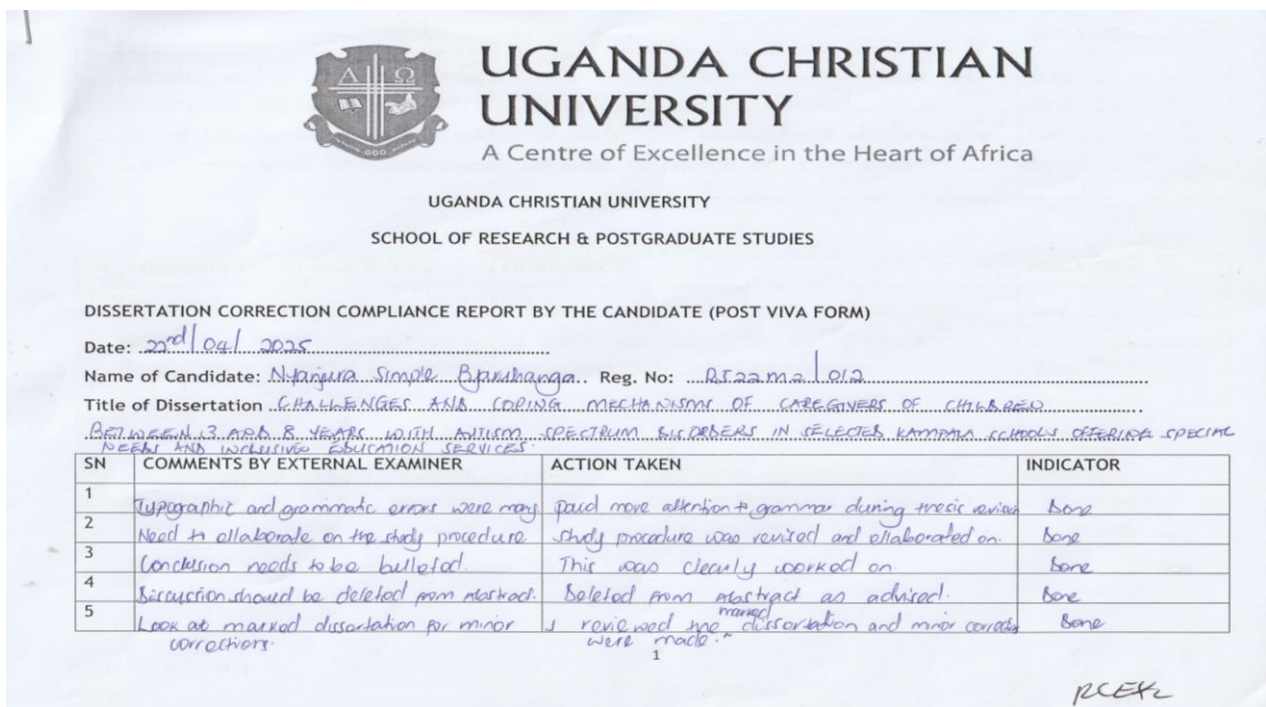 UGANDA CHRISTIAN
UNIVERSITY
A Centre of Excellence in the Heart of Africa
A Ω
GOD
UGANDA CHRISTIAN UNIVERSITY
SCHOOL OF RESEARCH & POSTGRADUATE STUDIES
DISSERTATION CORRECTION COMPLIANCE REPORT BY THE CANDIDATE (POST VIVA FORM)
Date: 22nd/04/2025
Name of Candidate: Simple Byaruhanga Reg. No: RS22M2/012
Title of Dissertation CHALLENGES AND COPING MECHANISMS OF CAREGIVERS OF CHILDREN
BETWEEN 3 AND 8 YEARS WITH AUTISM SPECTRUM DISORDERS IN SELECTED KAMPALA SCHOOLS OFFERING SPECIAL
NEEDS AND INCLUSIVE EDUCATION SERVICES.
SN COMMENTS BY EXTERNAL EXAMINER ACTION TAKEN INDICATOR
1 Typographic and grammatic errors were many paid more attention to grammar during thesis Done
2 Need to ellaborate on the study procedure study procedure was revised and ellaborated on. Done
3 Conclusion needs to be bulleted. This was clearly worked on. Done
4 Discussion should be deleted from abstract. Deleted from abstract as advised. Done
5 Look at marked dissertation for minor corrections. I reviewed the marked dissertation and minor were made. Done
1